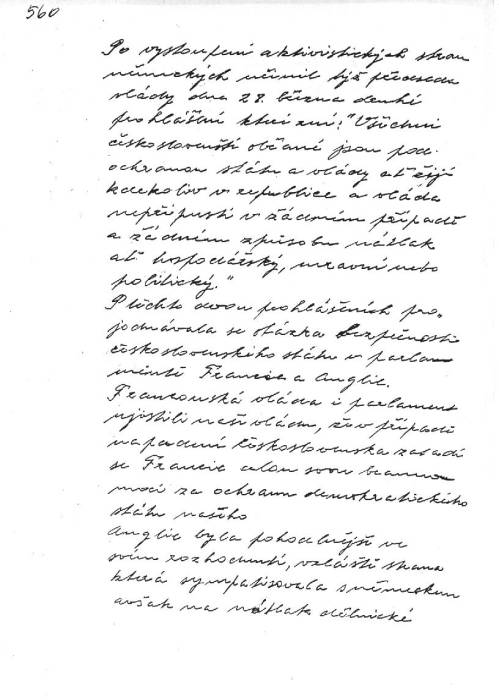 560
Po vystoupení aktivistických stran
německých učinil týž předseda
vlády dna 28. března druhé
prohlášení které zní: "Všichni
českoslovenští občané jsou pod.
ochranou státu a vlády ať žijí
kdekoliv v republice a vláda
nepřipustí v žádném případě
a žádným způsobu nátlak
ať hospodářský, mravní nebo
politický."
Po těchto dvou prohlášeních pro,
jednávala se otázka bezpečnosti
československého státu v parla
mentě Francie a Anglie.
Francouzská vláda i parlament
ujistili naši vládu, že v případě
napadení Československa zasadí
se Francie celou svou brannou
mocí za ochranu demokratického
státu našeho
Anglie byla pohodlnější ve
svém rozhodnutí, zvláště strana
která sympatisovala s německem
avšak na nátlak dělnické